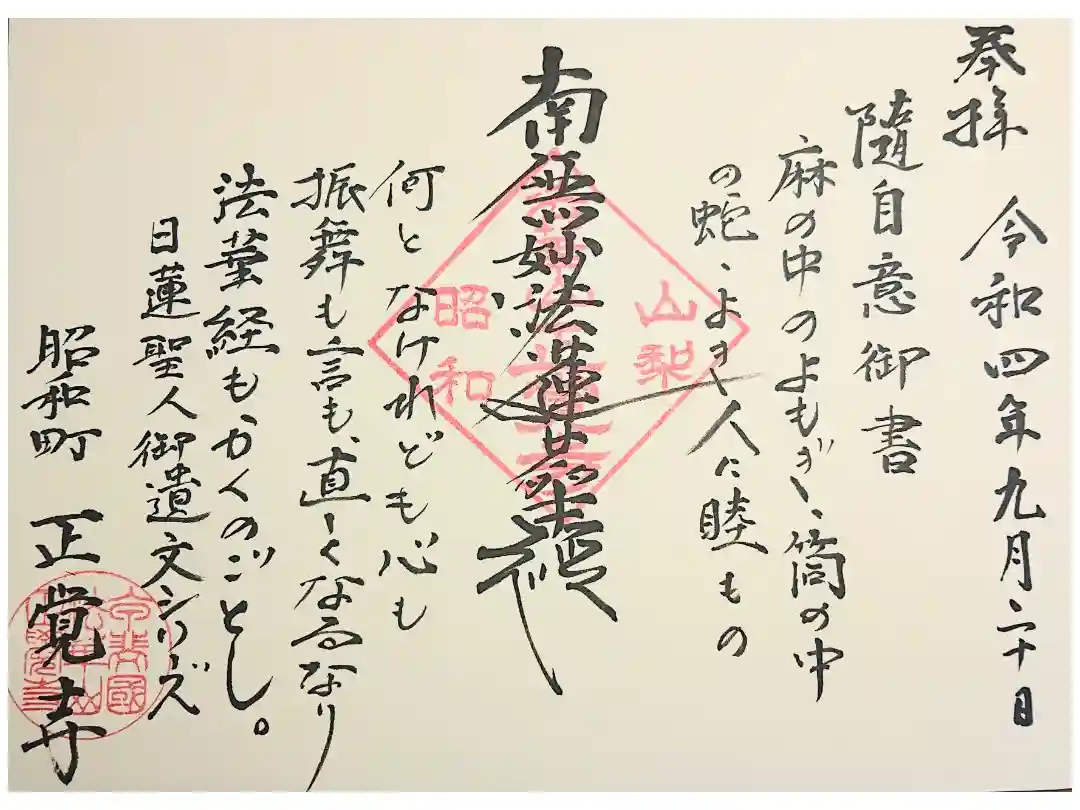 奉拝　令和四年九月二十日
隨自意御書
麻の中のよもぎ、筒の中
の蛇、よき人に睦もの
南無妙法蓮華経
何となけれども心も
振舞も言も、直しくなるなり
法華経もかくのごとし。
日蓮聖人御遺文シリーズ
昭和町　正覚寺
山梨
昭和